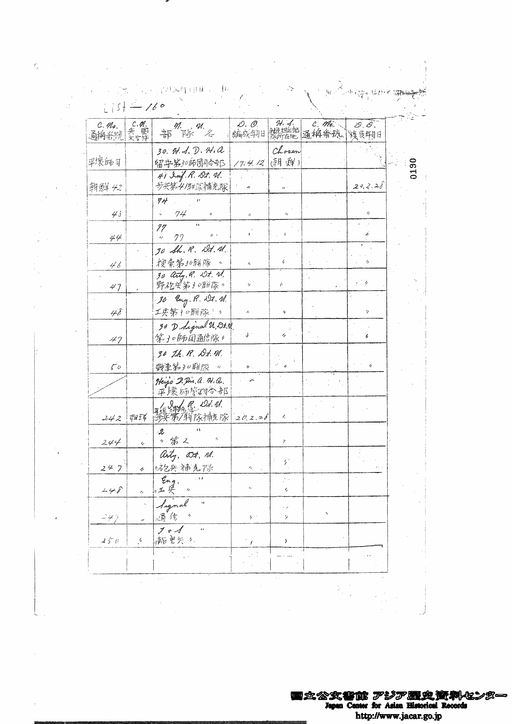 LIST — 160
C.No. C.N. N. U. D.O. H.S. C.No. D.O.
通稱番號 部隊名 編成年月日 通稱番號 復員年月日
30. H.S.D.H.Q. Chosen
平壤師月 留守第30師團司令部 17.4.12 (朝鮮)
41 Inf.R. Dt.U.
朝鮮 42 步兵第41聯隊補充隊 〃 〃 20.2.28
74 〃
43 〃 74 〃 〃 〃 〃
77 〃
44 〃 77 〃 〃 〃 〃
30 Sh. R. Dt. U.
46 搜索第30聯隊 〃 〃 〃 〃
30 Arty. R. Dt. U.
47 野砲兵第30聯隊 〃 〃 〃 〃
30 Eng. R. Dt. U.
48 工兵第30聯隊 〃 〃 〃
30 D. Signal U. Dt. U.
49 第30師團通信隊 〃 〃 〃 〃
30 Tk. R. Dt. U.
50 輜重第30聯隊 〃 〃 〃 〃
Heijo D. Dis. A. H.Q.
平壤師管區司令部
1 Inf. R. Dt. U.
242 朝鮮 步兵第1聯隊補充隊 20.2.28 〃
2 〃
244 〃 〃 第2 〃 〃
Arty. Dt. U.
247 〃 〃 砲兵補充隊 〃
Eng. 〃
248 〃 〃 工兵 〃 〃 〃
Signal 〃
249 〃 〃 通信 〃 〃 〃
T & S 〃
250 〃 〃 輜重兵 〃 〃 〃
0190
国立公文書館 アジア歴史資料センター
Japan Center for Asian Historical Records
http://www.jacar.go.jp